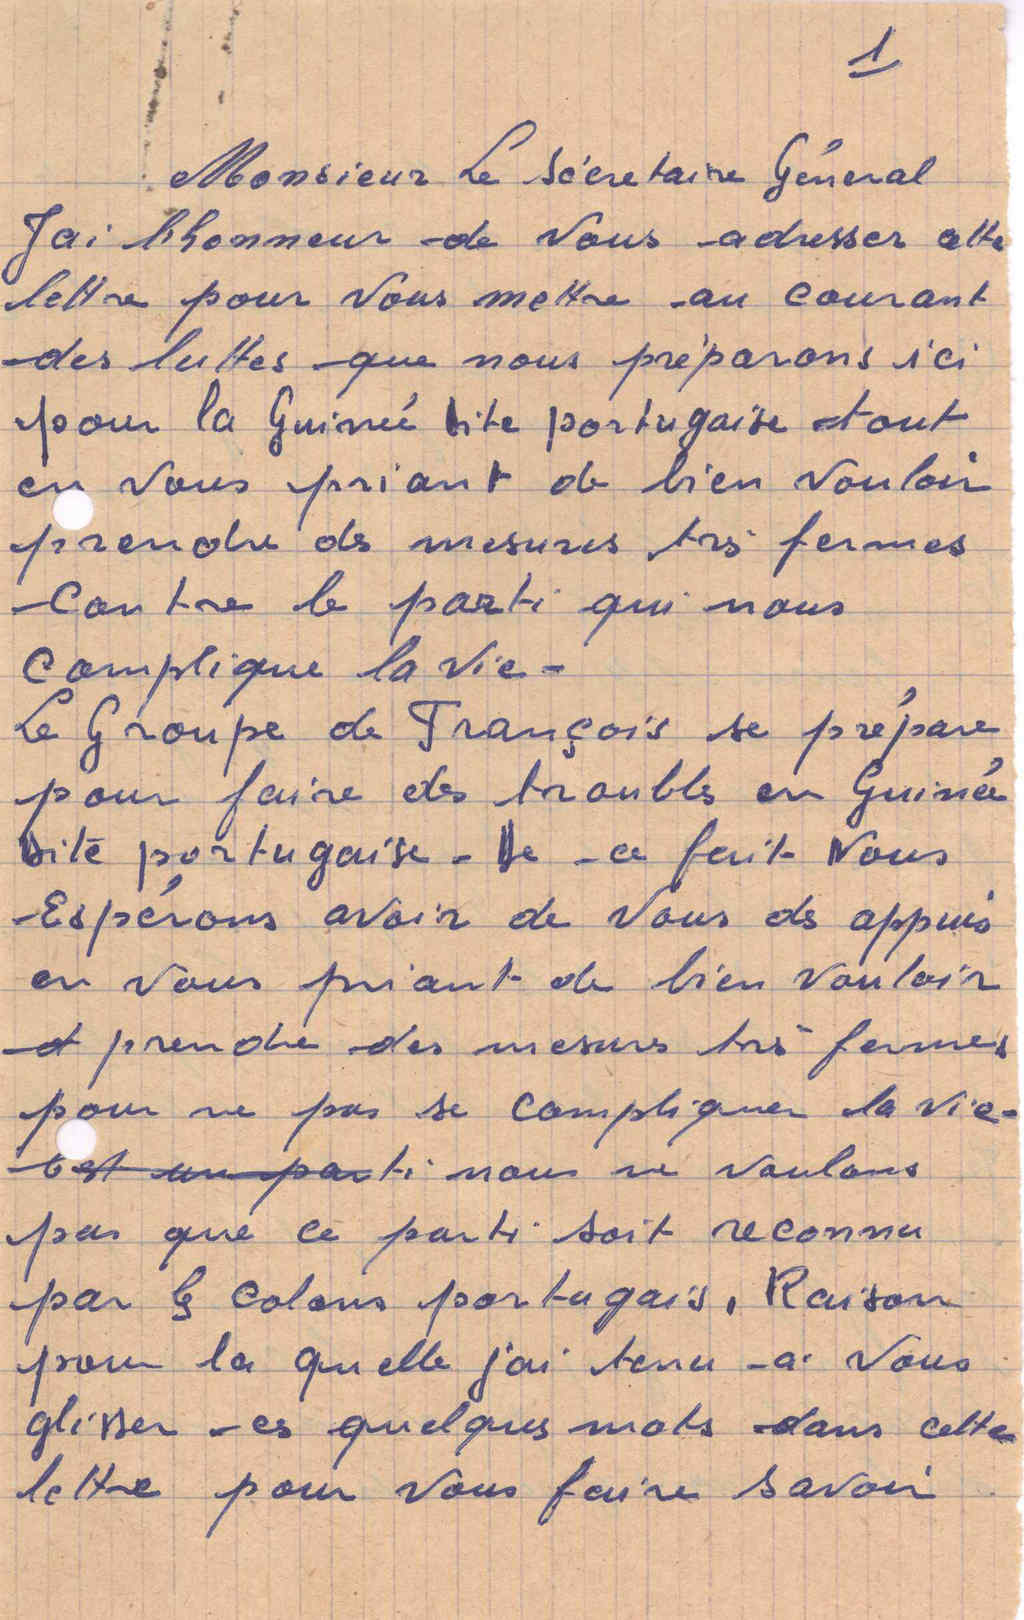 1
Monsieur Le Sécretaire Géneral
J'ai l'honneur de vous adresser cette
lettre pour vous mettre au courant
des luttes que nous préparons ici
pour la Guinée dite portugaise tout
en vous priant de bien vouloir
prendre des mesures très fermes
Contre le parti qui nous
Complique la vie -
Le Groupe de François se prépare
pour faire des troubles en Guinée
dite portugaise - De ce fait Nous
Espérons avoir de vous des appuis
en vous priant de bien vouloir
et prendre des mesures très fermes
pour ne pas se compliquer la vie -
c'est un parti nous ne voulons
pas que ce parti soit reconnu
par les colons portugais, Raison
pour la quelle j'ai tenu a vous
glisser ces quelques mots dans cette
lettre pour vous faire savoir